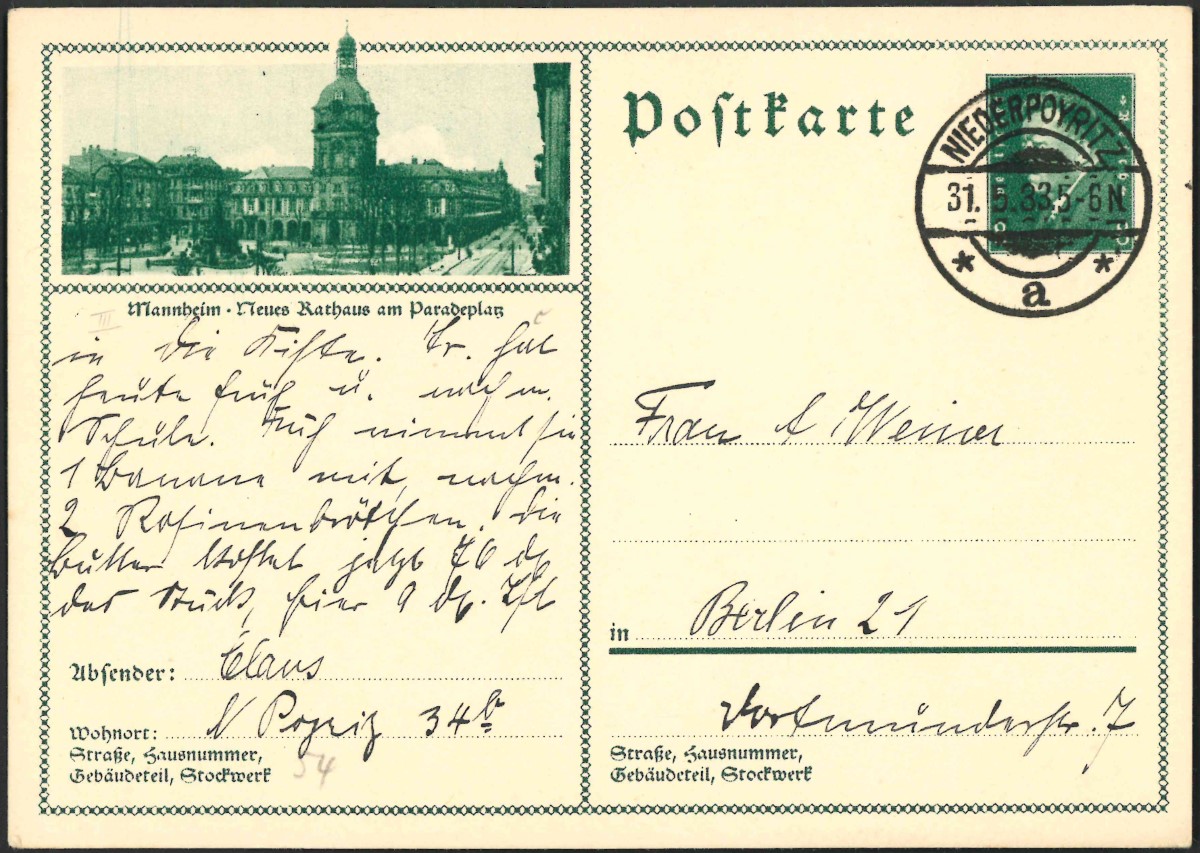 Postkarte
NIEDERPOYRITZ
31. 5. 33. 5-6 N
* a *
Mannheim · Neues Rathaus am Paradeplatz
III
in die Kiste. Er. hat
heute früh u. nachm.
Schule. Früh nimmt sie
1 Banane mit, nachm.
2 Rosinenbrötchen. Die
Butter kostet jetzt 76 dg
das Stück, hier 9 dg.
Absender: Claus
Wohnort: N Poyritz 34b
Straße, Hausnummer,
Gebäudeteil, Stockwerk
54
Frau A Weiner
in Berlin 21
Dortmunderstr. 7
Straße, Hausnummer,
Gebäudeteil, Stockwerk